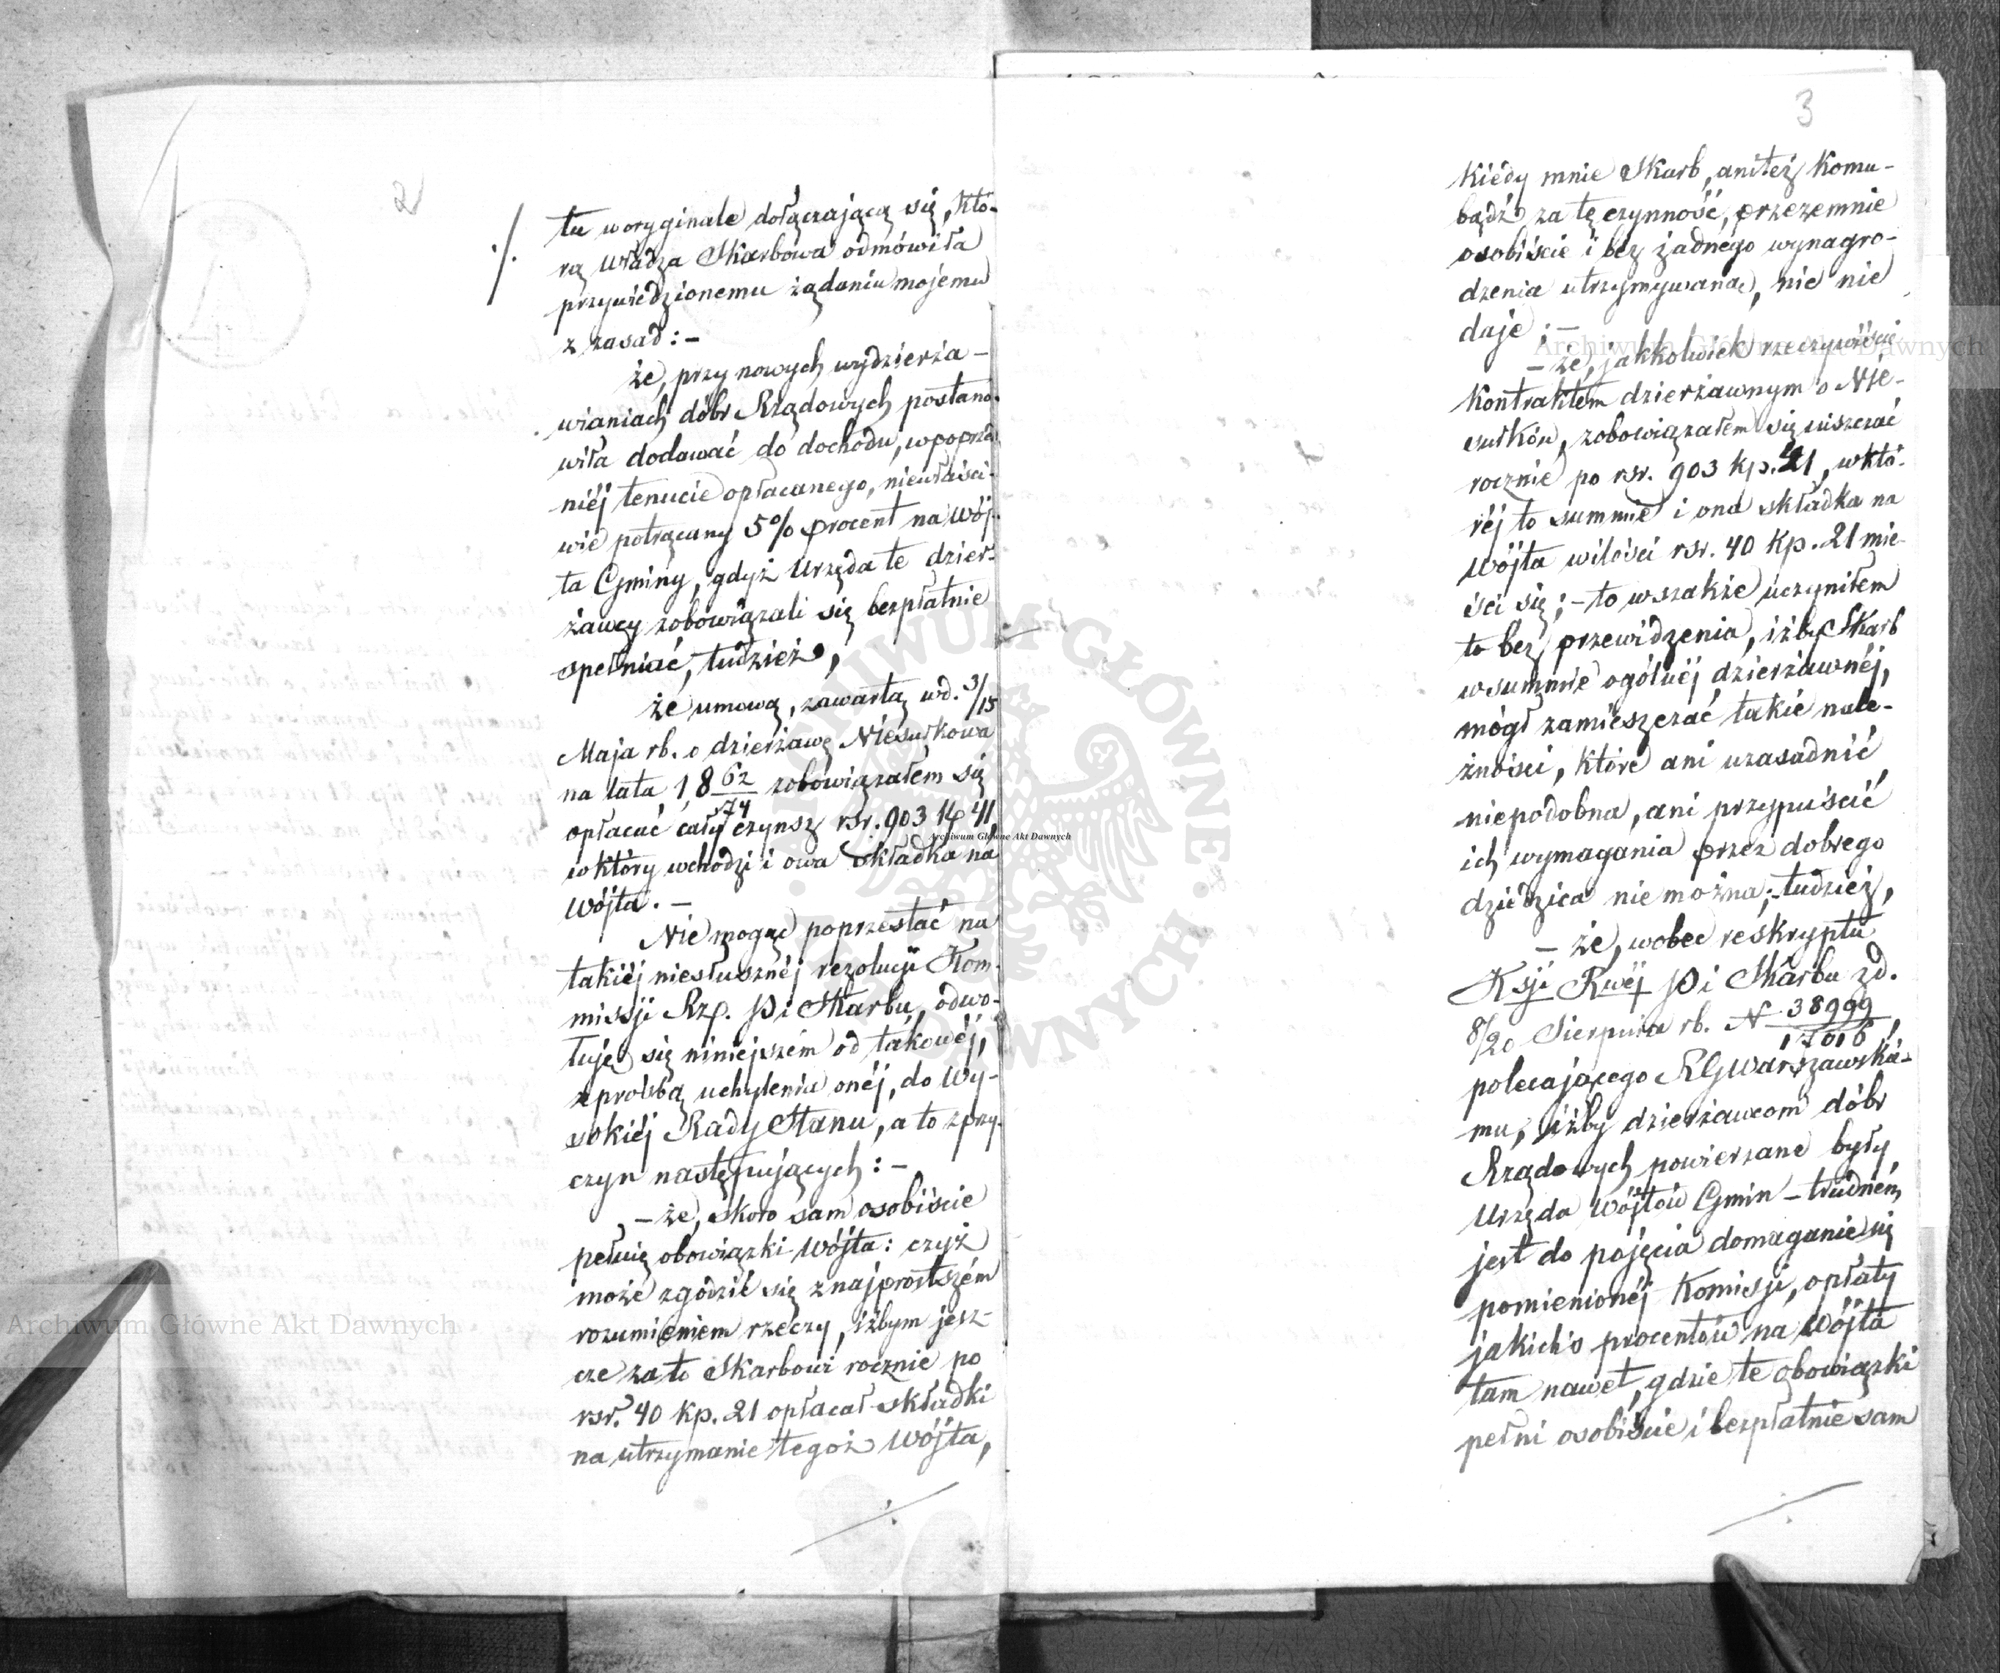 2
./.
tu w oryginale dołączającą się, któ-
rą Władza Skarbowa odmówiła
przywiedzionemu żądaniu mojemu
z zasad: –
że, przy nowych wydzierża-
wianiach dóbr Rządowych postano-
wiła dodawać do dochodu, w poprzed
niéj tenucie opłacanego, niewłaści-
wie potrącany 5% procent na Wój-
ta Gminy, gdyż Urzęda te dzier-
żawcy zobowiązali się bezpłatnie
spełniać, tudzież,
że umową, zawartą w d. 3/15
Maja rb. o dzierżawę Niesułkowa
na lata 1862/74 zobowiązałem się
opłacać cały czynsz rsr. 903 kp 41,
w który wchodzi i owa składka na
Wójta. –
Nie mogąc poprzestać na
takiéj niesłusznéj rezolucji Kom-
missji Rzą. P i Skarbu, odwo-
łuję się niniejszém od takowéj,
z prośbą uchylenia onéj, do Wy-
sokiéj Rady Stanu, a to z przy-
czyn następujących: –
– że, skoro sam osobiście
pełnię obowiązki Wójta: czyż
może zgodzić się z najprostszém
rozumieniem rzeczy, iżbym jesz-
cze za to Skarbowi rocznie po
rsr. 40 kp. 21 opłacał składki
na utrzymanie tegoż Wójta,
./.
3
kiedy mnie Skarb, aniteż komu-
bądź za tę czynność, przezemnie
osobiście i bez żadnego wynagro-
dzenia utrzymywaną, nic nie
daje; –
– że, jakkolwiek rzeczywiście
Kontraktem dzierżawnym o Nie-
sułków, zobowiązałem się uiszczać
rocznie po rsr. 903 kp. 41, w któ-
réj to summie i ona składka na
Wójta w ilości rsr. 40 kp. 21 mie-
ści się; – to wszakże uczyniłem
to bez przewidzenia, iżby Skarb
w summie ogólnéj dzierżawnéj,
mógł zamieszczać takie nale-
żności, które ani uzasadnić
niepodobna, ani przypuścić
ich wymagania przez dobrego
dziedzica nie można; – tudzież,
– że, wobec reskryptu
Ksji Rwéj P i Skarbu z d.
8/20 Sierpnia rb. N 38999/17016,
polecającego RGWarszawskié-
mu, iżby dzierżawcom dóbr
Rządowych powierzane były
Urzęda Wójtów Gmin – trudném
jest do pojęcia domaganie się
pomienionéj Komisji, opłaty
jakichś procentów na Wójta
tam nawet, gdzie te obowiązki
pełni osobiście i bezpłatnie sam
./.
Archiwum Główne Akt Dawnych
Archiwum Główne Akt Dawnych
Archiwum Główne Akt Dawnych
ARCHIWUM GŁÓWNE AKT DAWNYCH